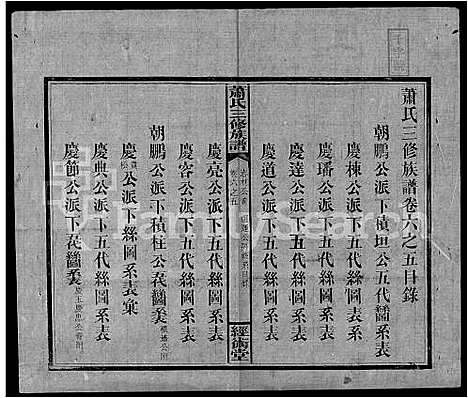 蕭氏三修族譜卷六之五目錄
朝鵬公派下積坦公五代絲圖系表
慶棟公派下五代絲圖系表
慶璠公派下五代絲圖系表
慶達公派下五代絲圖系表
慶道公派下五代絲圖系表
蕭氏三修族譜
卷六之五
經術堂
慶亮公派下五代絲圖系表
慶容公派下五代絲圖系表
朝鵬公派下積柱公
慶 公派下絲圖系表
慶典公派下五代絲圖系表
慶節公派下
FamilySearch